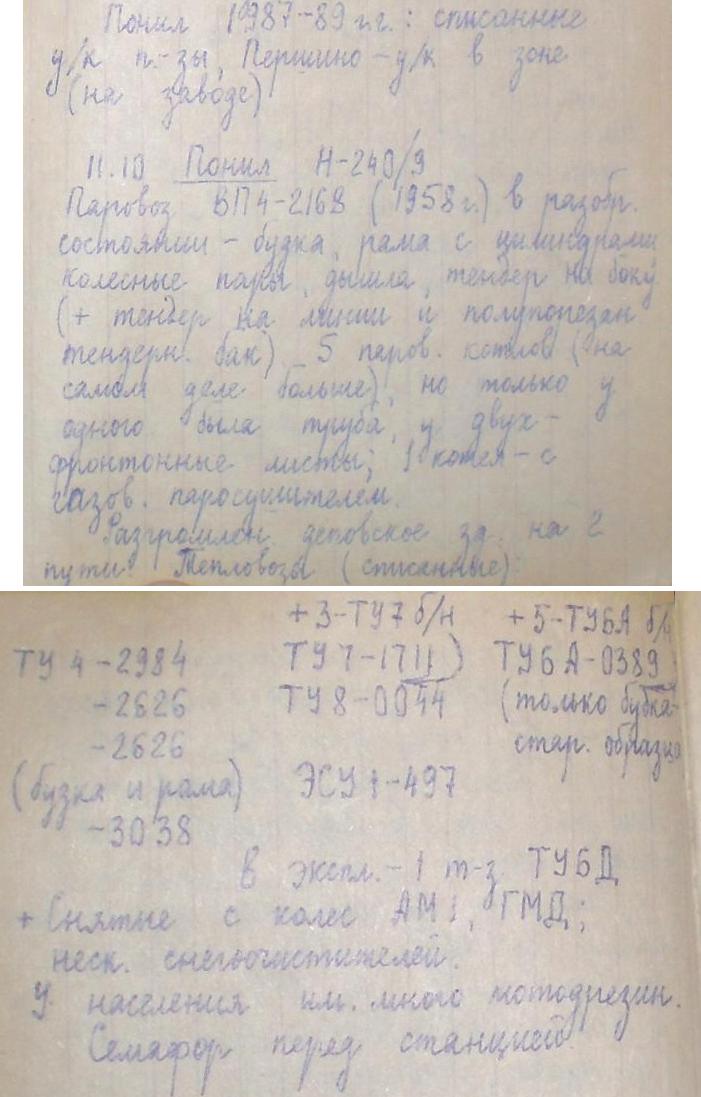 Понил 1987-89 г.г.: списанные
у/к п.-зы, Першино - у/к в зоне
(на заводе)
11.10 Понил Н-240/9
Паровоз ВП4-2168 (1958 г.) в разобр.
состоянии - будка, рама с цилиндрами
колесные пары, дышла, тендер на боку
(+ тендер на линии и полупорезан
тендерн. бак) 5 паров. котлов (на
самом деле больше), но только у
одного была труба, у двух -
фронтонные листы; 1 котел - с
газов. паросушителем.
Разгромлен. деповское зд. на 2
пути. Тепловозы (списанные):
+ 3-ТУ7 б/н + 5-ТУ6А б/н
ТУ4-2984 ТУ7-1711) ТУ6А-0389
-2626 ТУ8-0044 (только будка
-2626 стар. образца
(будка и рама) ЭСУ1-497
-3038
В экспл. - 1 т-з ТУ6Д
+ Снятые с колес АМ1, ГМД;
неск. снегоочистителей.
У населения им. много мотодрезин.
Семафор перед станцией.